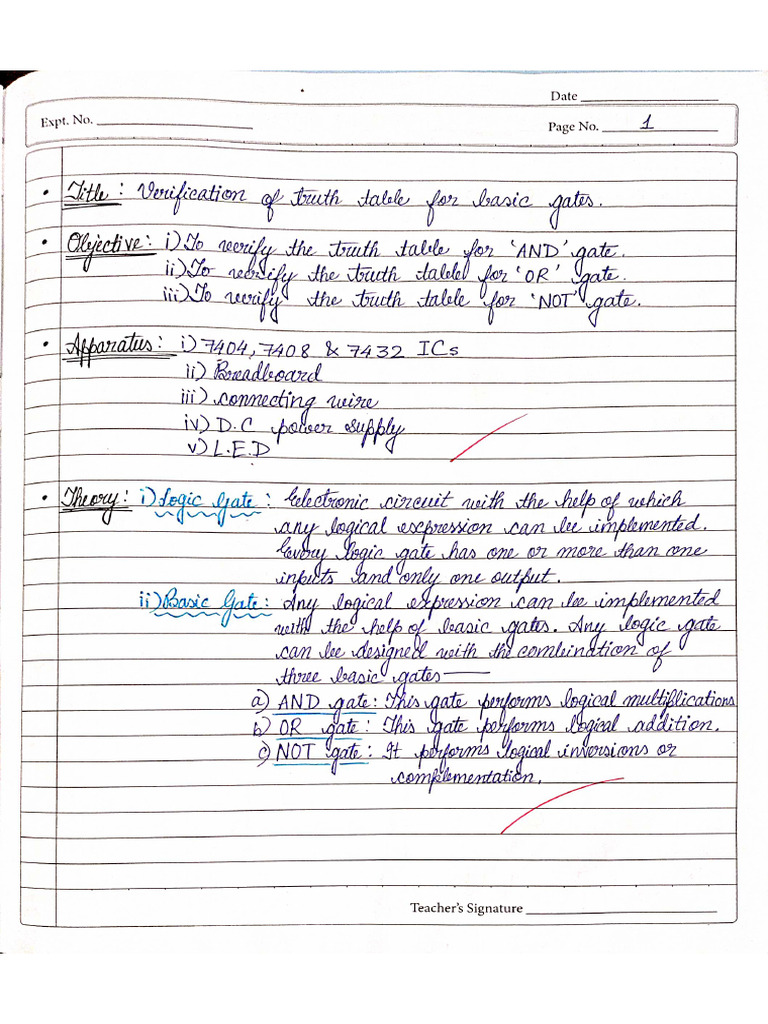 Date
Expt. No.
Page No. 1
• Title : Verification of truth table for basic gates.
• Objective : i) To verify the truth table for 'AND' gate.
ii) To verify the truth table for 'OR' gate.
iii) To verify the truth table for 'NOT' gate.
• Apparatus : i) 7404, 7408 & 7432 ICs
ii) Breadboard
iii) connecting wire
iv) D.C power supply
v) L.E.D
• Theory : i) Logic Gate : Electronic circuit with the help of which
any logical expression can be implemented.
Every logic gate has one or more than one
inputs and only one output.
ii) Basic Gate : Any logical expression can be implemented
with the help of basic gates. Any logic gate
can be designed with the combination of
three basic gates —
a) AND gate : This gate performs logical multiplications
b) OR gate : This gate performs logical addition.
c) NOT gate : It performs logical inversions or
complementation.
Teacher's Signature